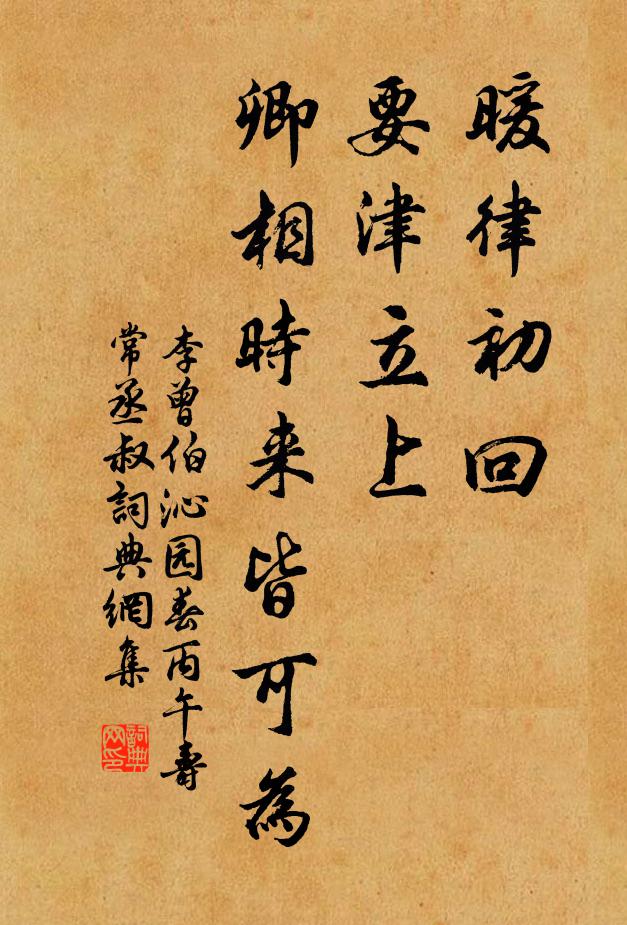 暖律初回
要津立上
卿相時来皆可為
李曾伯沁园春丙午壽
常丞叔詞典網集
詞典
网印